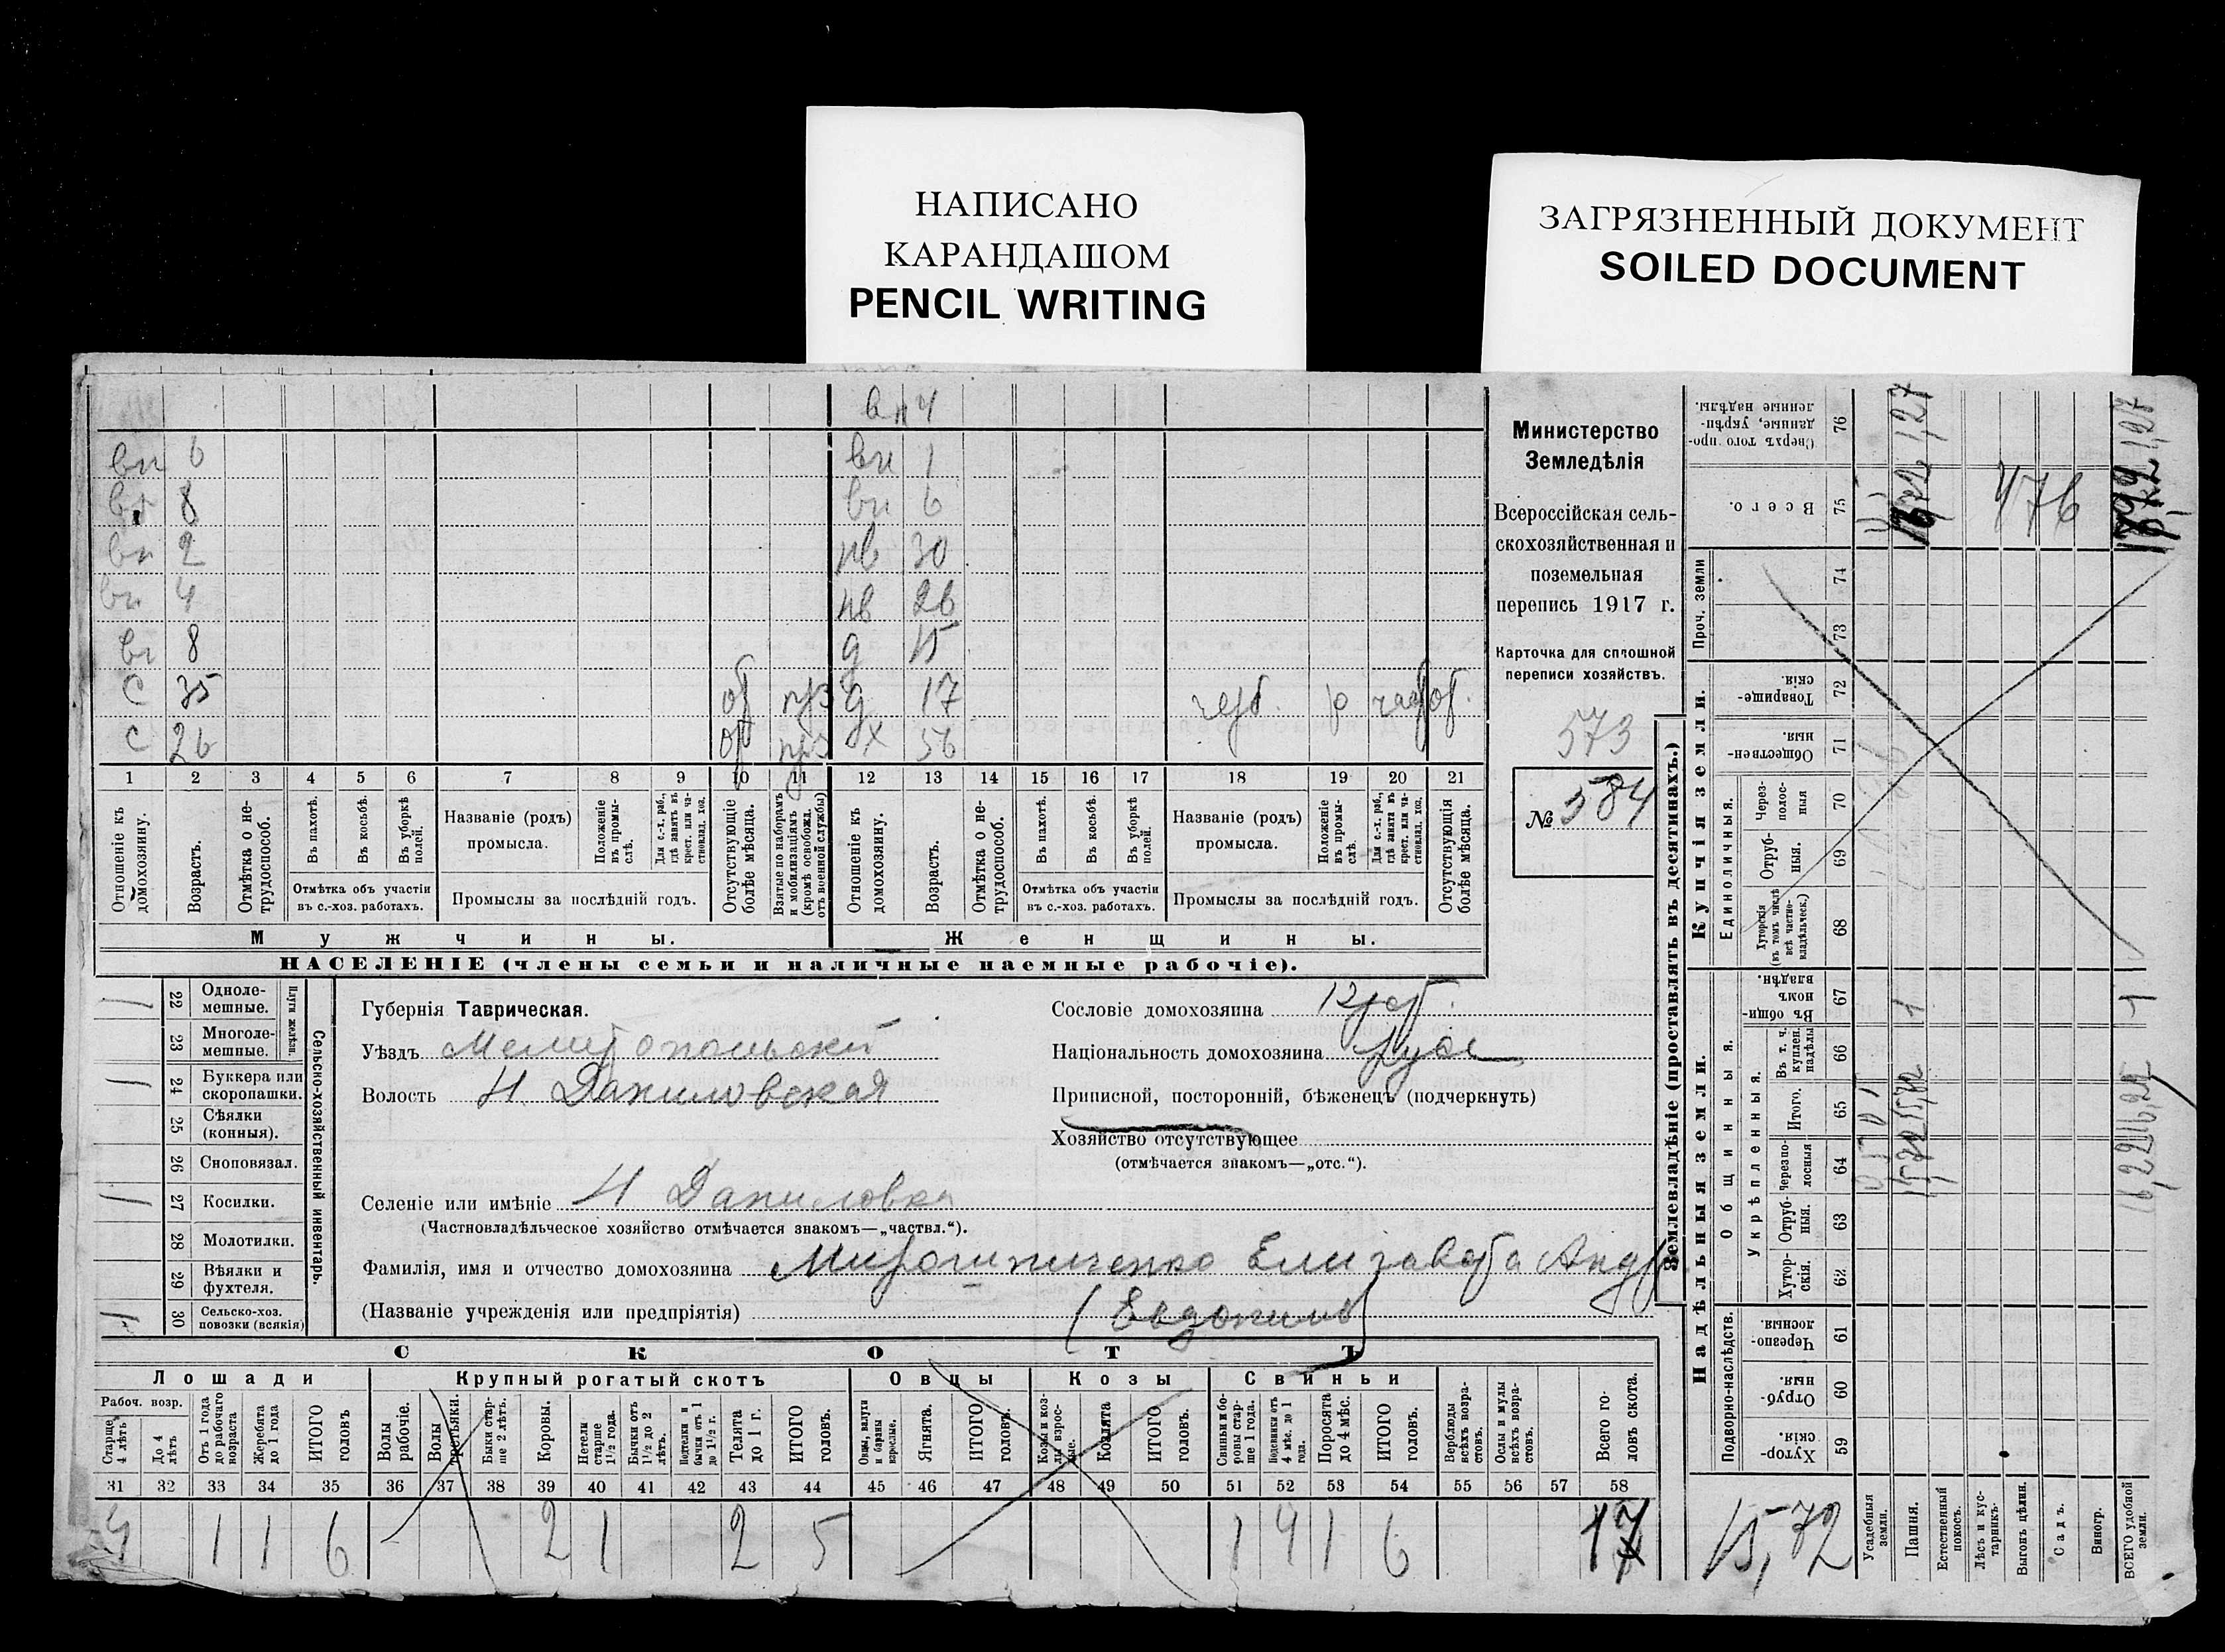 НАПИСАНО
КАРАНДАШОМ
PENCIL WRITING
ЗАГРЯЗНЕННЫЙ ДОКУМЕНТ
SOILED DOCUMENT
вн 4
вн 6 вн 1
вн 8 вн 6
вн 2 нв 30
вн 4 нв 26
вн 8 д 15
С 35 об прз д 17 об.
С 26 об прз х 56
1 2 3 4 5 6 7 8 9 10 11 12 13 14 15 16 17 18 19 20 21
Отношеніе къ домохозяину.
Возрастъ.
Отмѣтка о не-трудоспособ.
Въ пахотѣ.
Въ косьбѣ.
Въ уборкѣ полей.
Отмѣтка объ участіи въ с.-хоз. работахъ.
Названіе (родъ) промысла.
Положеніе въ промы-слѣ.
Для с.-х. раб., гдѣ занятъ въ крест. или ча-стновлад. хоз.
Промыслы за послѣдній годъ.
Отсутствующіе болѣе мѣсяца.
Взятые по наборамъ и мобилизаціямъ (кромѣ освобожд. отъ военной службы)
Отношеніе къ домохозяину.
Возрастъ.
Отмѣтка о не-трудоспособ.
Въ пахотѣ.
Въ косьбѣ.
Въ уборкѣ полей.
Отмѣтка объ участіи въ с.-хоз. работахъ.
Названіе (родъ) промысла.
Положеніе въ промы-слѣ.
Для с.-х. раб., гдѣ занята въ крест. или ча-стновлад. хоз.
Промыслы за послѣдній годъ.
Отсутствующія болѣе мѣсяца.
Мужчины.
Женщины.
НАСЕЛЕНІЕ (члены семьи и наличные наемные рабочіе).
Министерство
Земледѣлія
Всероссійская сель-
скохозяйственная и
поземельная
перепись 1917 г.
Карточка для сплошной
переписи хозяйствъ.
573
№ 584
1 22 Одноле-мешные.
23 Многоле-мешные.
Плуги желѣзн.
1 24 Буккера или скоропашки.
25 Сѣялки (конныя).
26 Сноповязал.
1 27 Косилки.
28 Молотилки.
29 Вѣялки и фухтеля.
30 Сельско-хоз. повозки (всякія)
Сельско-хозяйственный инвентарь.
Губернія Таврическая.
Уѣздъ Мелитопольский
Волость Н. Даниловская
Селеніе или имѣніе Н Даниловка
(Частновладѣльческое хозяйство отмѣчается знакомъ—„частвл.“).
Фамилія, имя и отчество домохозяина Мирошниченко Елизавета Андр
(Названіе учрежденія или предпріятія) (Евдоким)
Сословіе домохозяина
Національность домохозяина русс
Приписной, посторонній, бѣженецъ (подчеркнуть)
Хозяйство отсутствующее
(отмѣчается знакомъ—„отс.“).
СКОТЪ
Лошади Крупный рогатый скотъ Овцы Козы Свиньи
Рабоч. возр.
Старше 4 лѣтъ
До 4 лѣтъ
Отъ 1 года до рабочаго возраста
Жеребята до 1 года
ИТОГО головъ
Волы рабочіе.
Волы третьяки.
Быки стар-ше 2 лѣтъ.
Коровы.
Нетели старше 1½ года.
Бычки отъ 1½ до 2 лѣтъ.
Нетелки и бычки отъ 1 до 1½ г.
Телята до 1 г.
ИТОГО головъ.
Овцы, валухи и бараны взрослые.
Ягнята.
ИТОГО головъ.
Козы и коз-лы взрос-лые.
Козлята
ИТОГО головъ.
Свиньи и бо-ровы стар-ше 1 года.
Подсвинки отъ 4 мѣс. до 1 года.
Поросята до 4 мѣс.
ИТОГО головъ.
Верблюды всѣхъ возра-стовъ.
Ослы и мулы всѣхъ возра-стовъ.
Всего го-ловъ скота.
31 32 33 34 35 36 37 38 39 40 41 42 43 44 45 46 47 48 49 50 51 52 53 54 55 56 57 58
4 1 1 6 2 1 2 5 1 4 1 6 17
Землевладѣніе (проставлять въ десятинахъ.)
Купчія земли.
Надѣльныя земли.
Сверхъ того про-данные, укрѣп-ленные надѣлы. 76
Всего. 75
Проч. земли 74 73
Товарище-скія. 72
Обществен-ныя. 71
Единоличныя.
Через-полос-ныя 70
Отруб-ныя. 69
Хуторскія (въ томъ числѣ всѣ частно-владѣльческ.) 68
Общинныя.
Въ общи-номъ владѣн. 67
Укрѣпленныя.
Въ т. ч. куплен. надѣлы 66
Итого. 65
Черезпо-лосныя 64
Отруб-ныя. 63
Хутор-скія. 62
Подворно-наслѣдств.
Черезпо-лосныя. 61
Отруб-ныя. 60
Хутор-скія. 59
476
1,27
15,72
Усадебныя земли.
Пашня.
Естественный покосъ.
Лѣсъ и кус-тарникъ.
Выгонъ цѣлин.
Садъ.
Виногр.
ВСЕГО удобной земли.